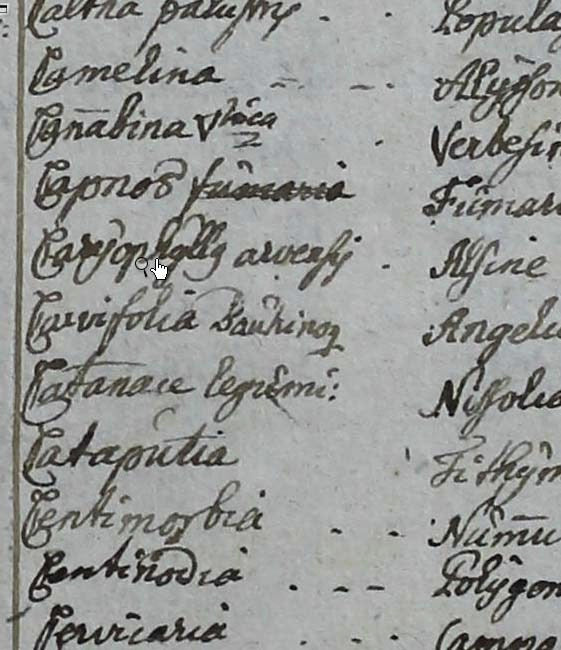 Caltha palustris . . Popula
Camelina - - . Alysson
Cañabina Verbesin
Capnos fumaria Fumar
Caryophyllg arvensis . Alsine
Carvifolia Bauhinoꝝ Angelic
Catanace legumi: Nissolia
Cataputia Tithym
Centimorbia - - Numu
Centinodia . - - Polygon
Cervicaria . - . Campa